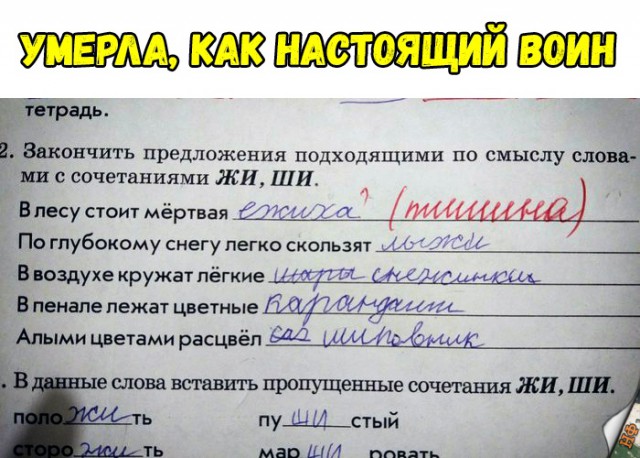 УМЕРЛА, КАК НАСТОЯЩИЙ ВОИН
тетрадь.
2. Закончить предложения подходящими по смыслу слова-
ми с сочетаниями ЖИ, ШИ.
В лесу стоит мёртвая ежиха ? (тишина)
По глубокому снегу легко скользят лыжи
В воздухе кружат лёгкие шары снежинки
В пенале лежат цветные
Алыми цветами расцвёл шиповник
. В данные слова вставить пропущенные сочетания ЖИ, ШИ.
положить пушистый
сторожить маршировать